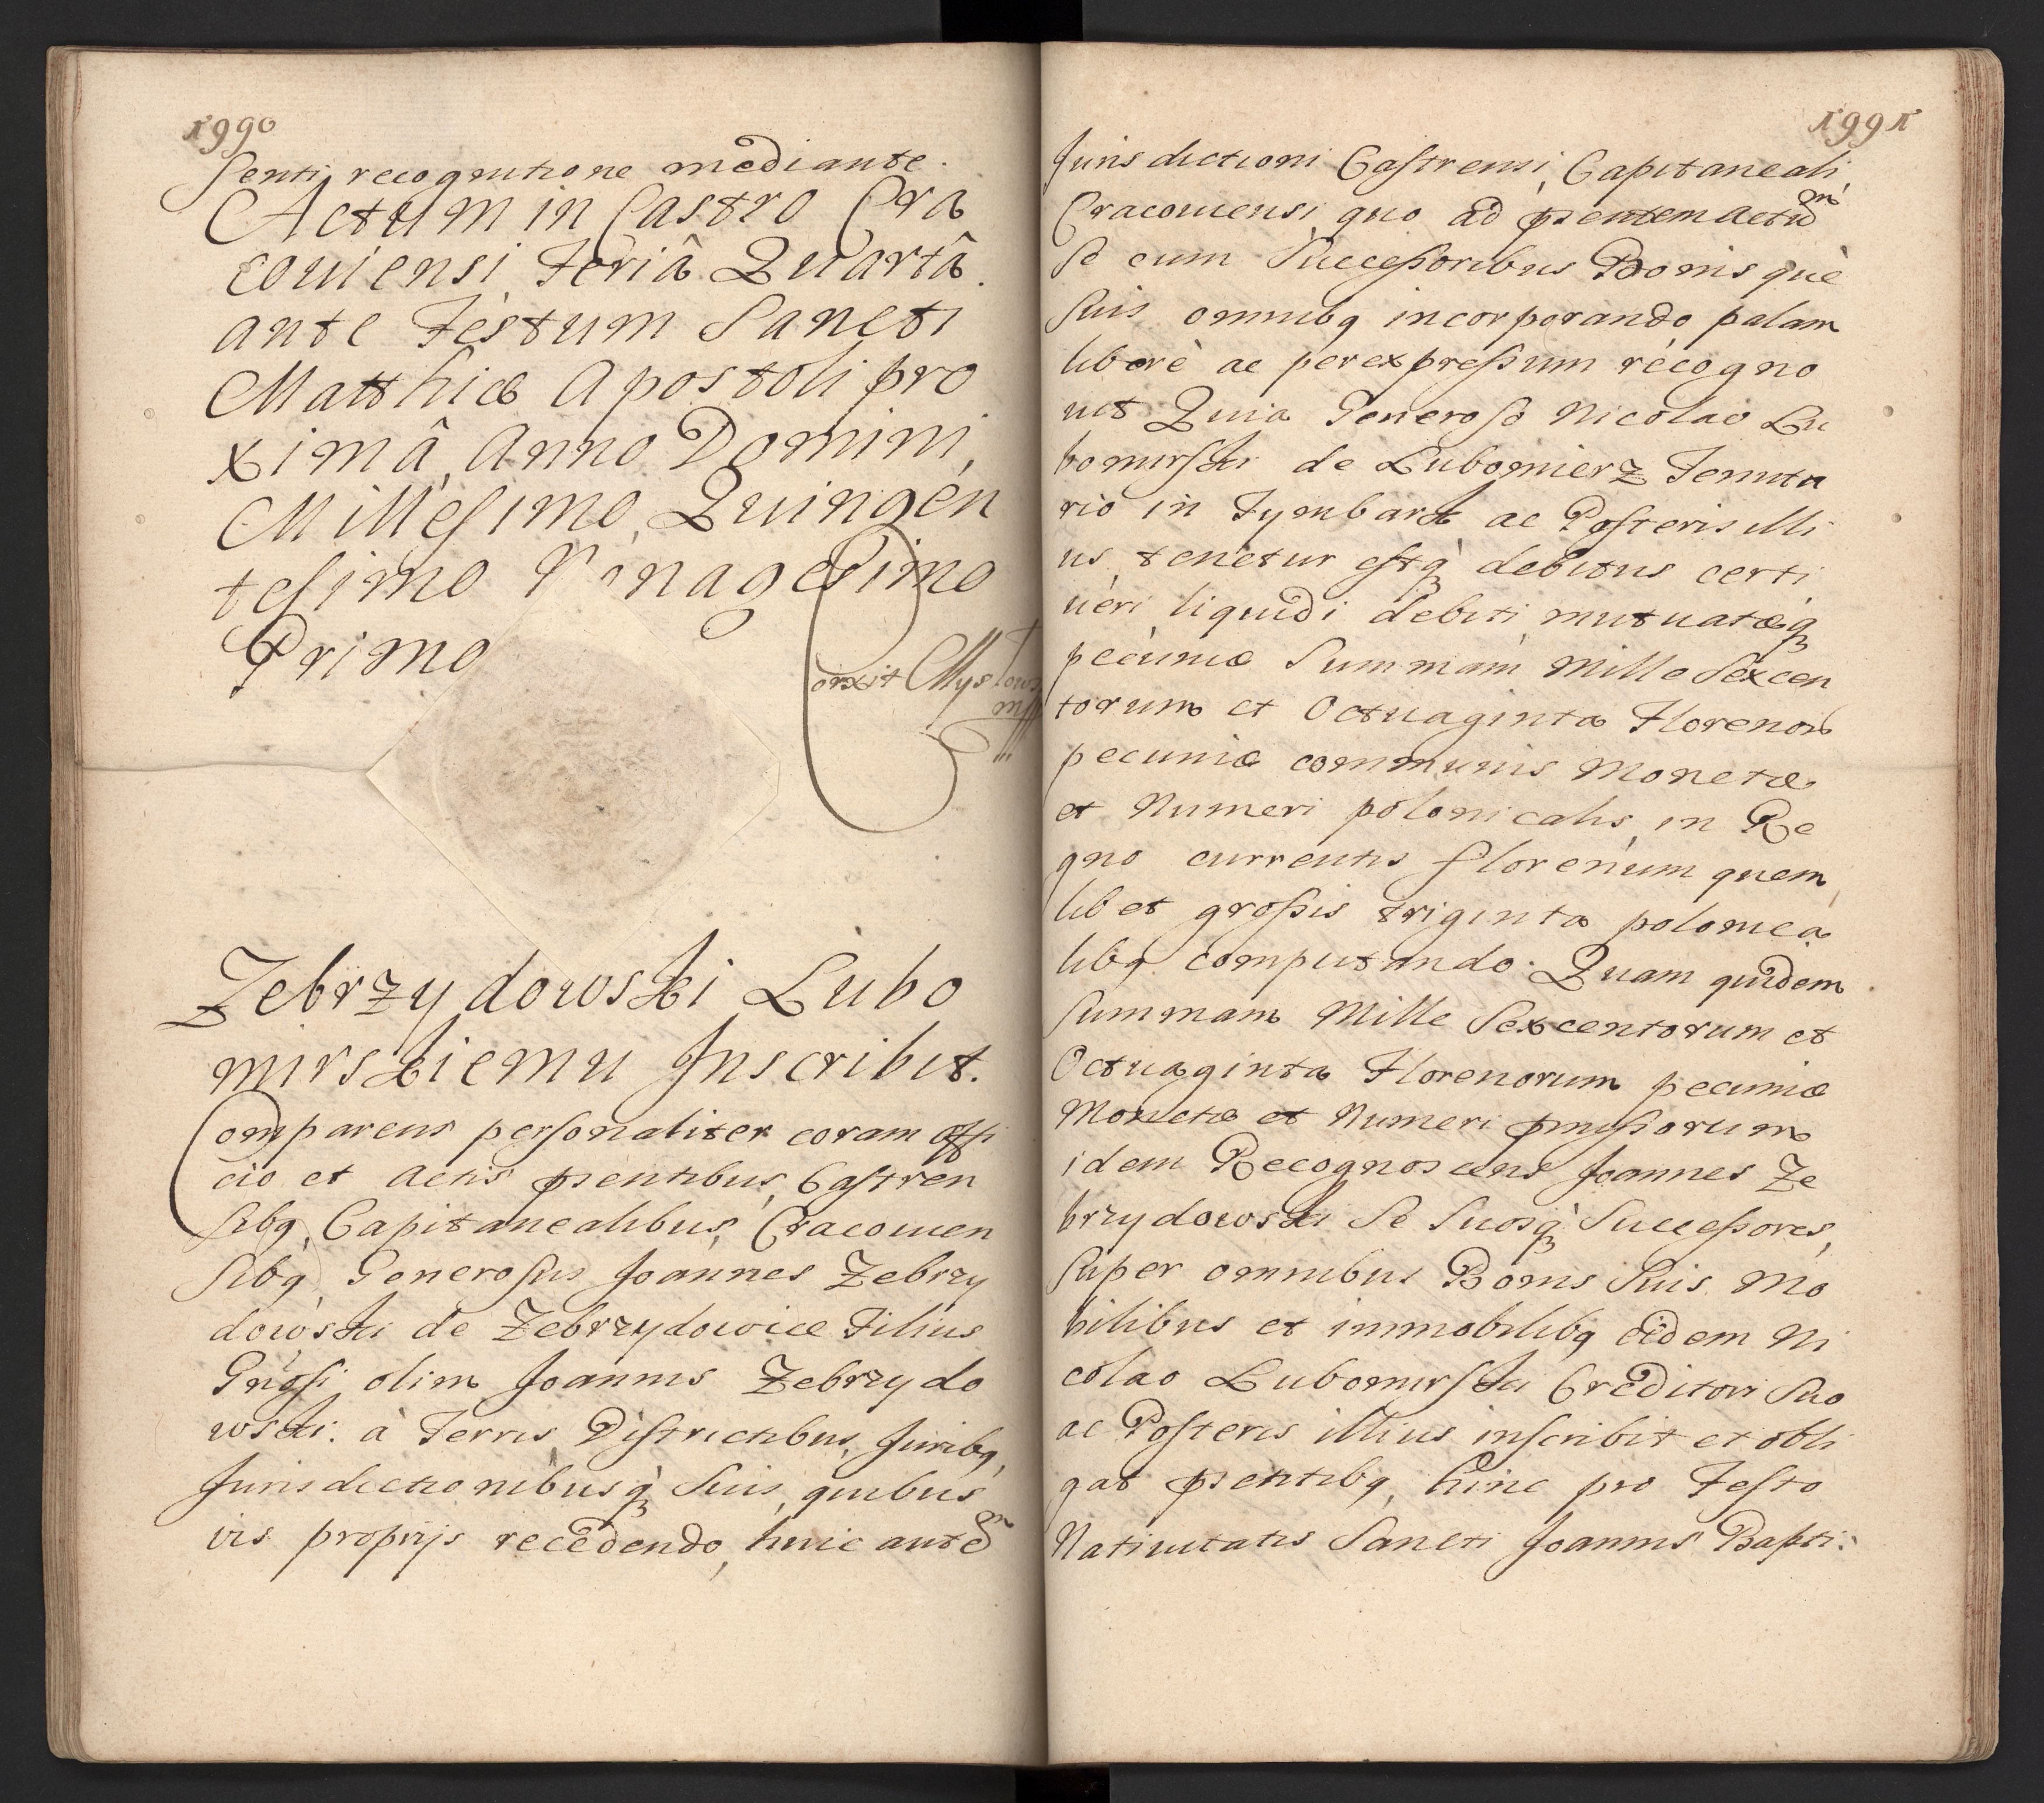 1990
senti recognitione mediante.
Actum in Castro Cra
coviensi, Feriâ Quartâ
ante Festum Sancti
Matthiæ Apostoli pro
ximâ, Anno Domini,
Millesimo, Quingen
tesimo Nonagesimo
Primo
Zebrzydowski Lubo
mirskiemu Inscribit.
Comparens personaliter coram offi
cio et Actis pñentibus, Castren
sibq, Capitanealibus, Cracovien
sibq, Generosus Joannes Zebrzy
dowski de Zebrzydowice Filius
Gñosi olim Joannis Zebrzydo
wski. à Terris Districtibus, Juribq,
Jurisdictionibusq̀ Suis, quibus
vis proprijs recedendo, huic autẽ
1991
Jurisdictioni Castrensi, Capitaneali,
Cracoviensi, quo ad pñentem actũ
Se cum Successoribus Bonisquè
Suis omnibq incorporando palam
liberè ac per expressum recogno
uit Quia Generoso Nicolao Lu
bomirski de Lubomierz Tenuta
rio in Tymbark ac Posteris illi
us tenetur estq̀ debitus certi
ueri liquidi debiti mutuatæq
pecuniæ Summam Mille Sexcen
torum et Octuaginta Florenor
pecuniæ communis Monetæ
et Numeri polonicalis, in Re
gno currentis florenum quem
libet grossis triginta polonica
libq computando. Quam quidem
Summam Mille Sexcentorum et
Octuaginta Florenorum pecuniæ
Monetæ et Numeri pmissorum
idem Recognoscens Joannes Ze
brzydowski Se Suosq̀ Successores,
Super omnibus Bonis Suis Mo
bilibus et immobilibq eidem Ni
colao Lubomirski Creditori Suo
ac Posteris illius inscribit et obli
gat pñentibq, hinc pro Festo
Natiuitatis Sancti Joannis Bapti: